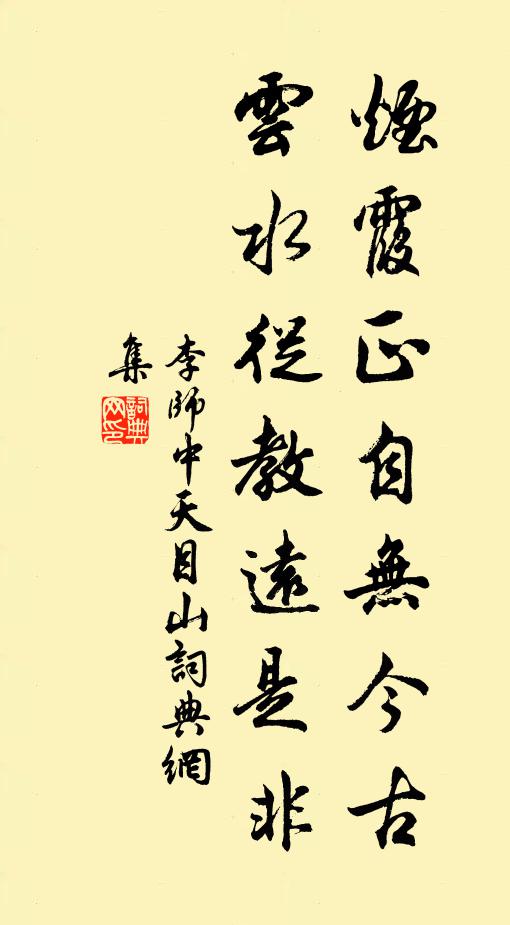 煙霞正自無今古
雲水從教遠是非
李師中天目山詞典網
集
詞典
网印